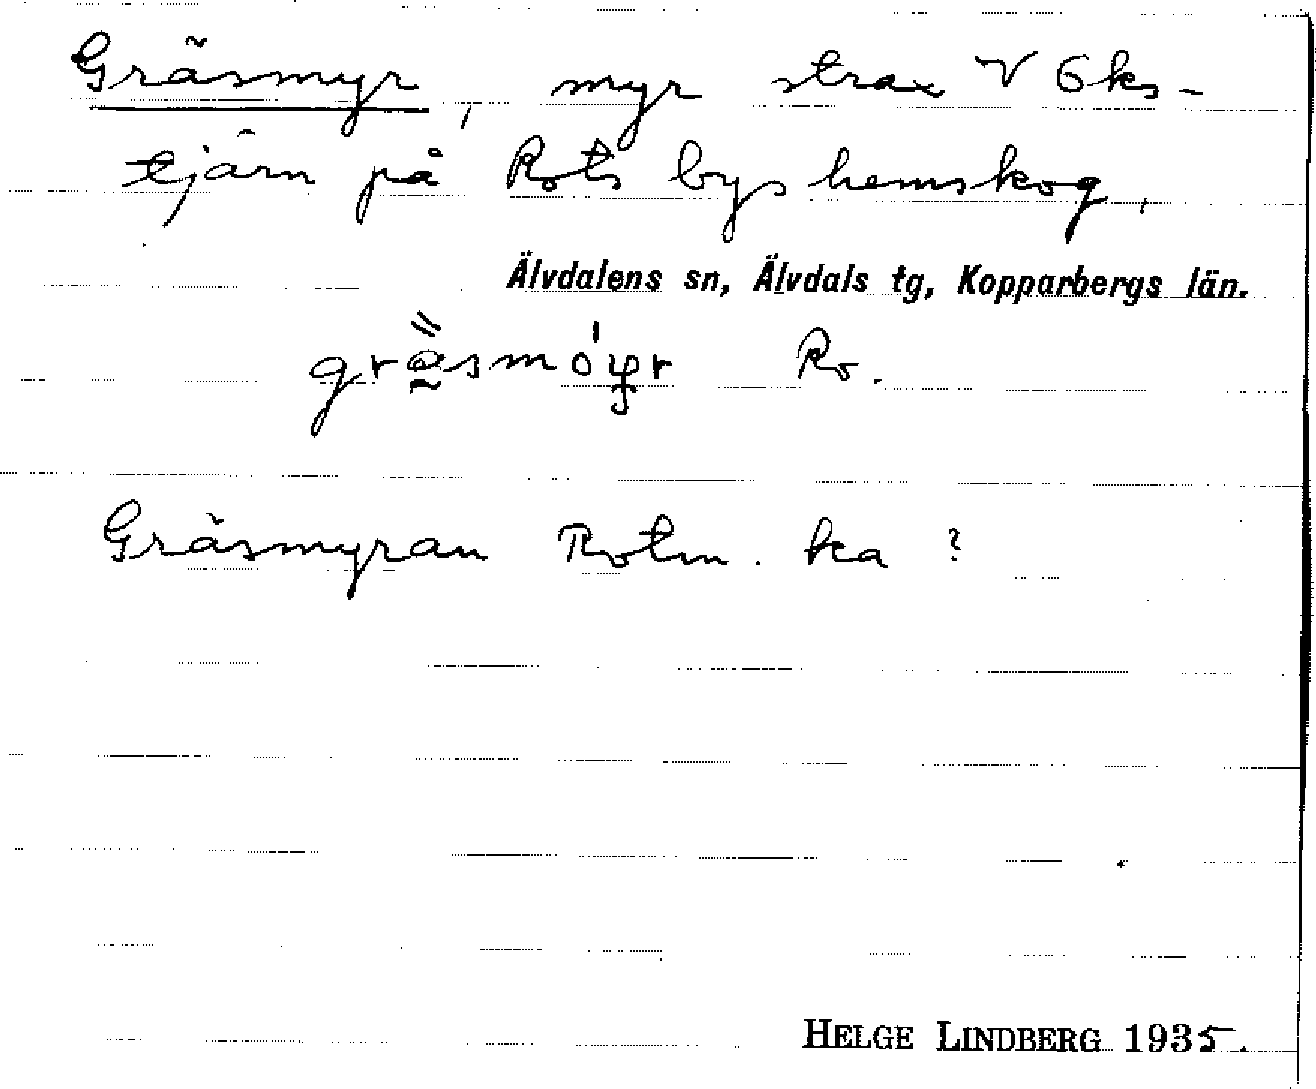 Gräsmyr, myr strax V Oks-
tjärn på Rots bys hemskog,
Älvdalens sn, Älvdals tg, Kopparbergs län.
Ro.
Gräsmyran Rotm. ka ?
HELGE LINDBERG 1935.